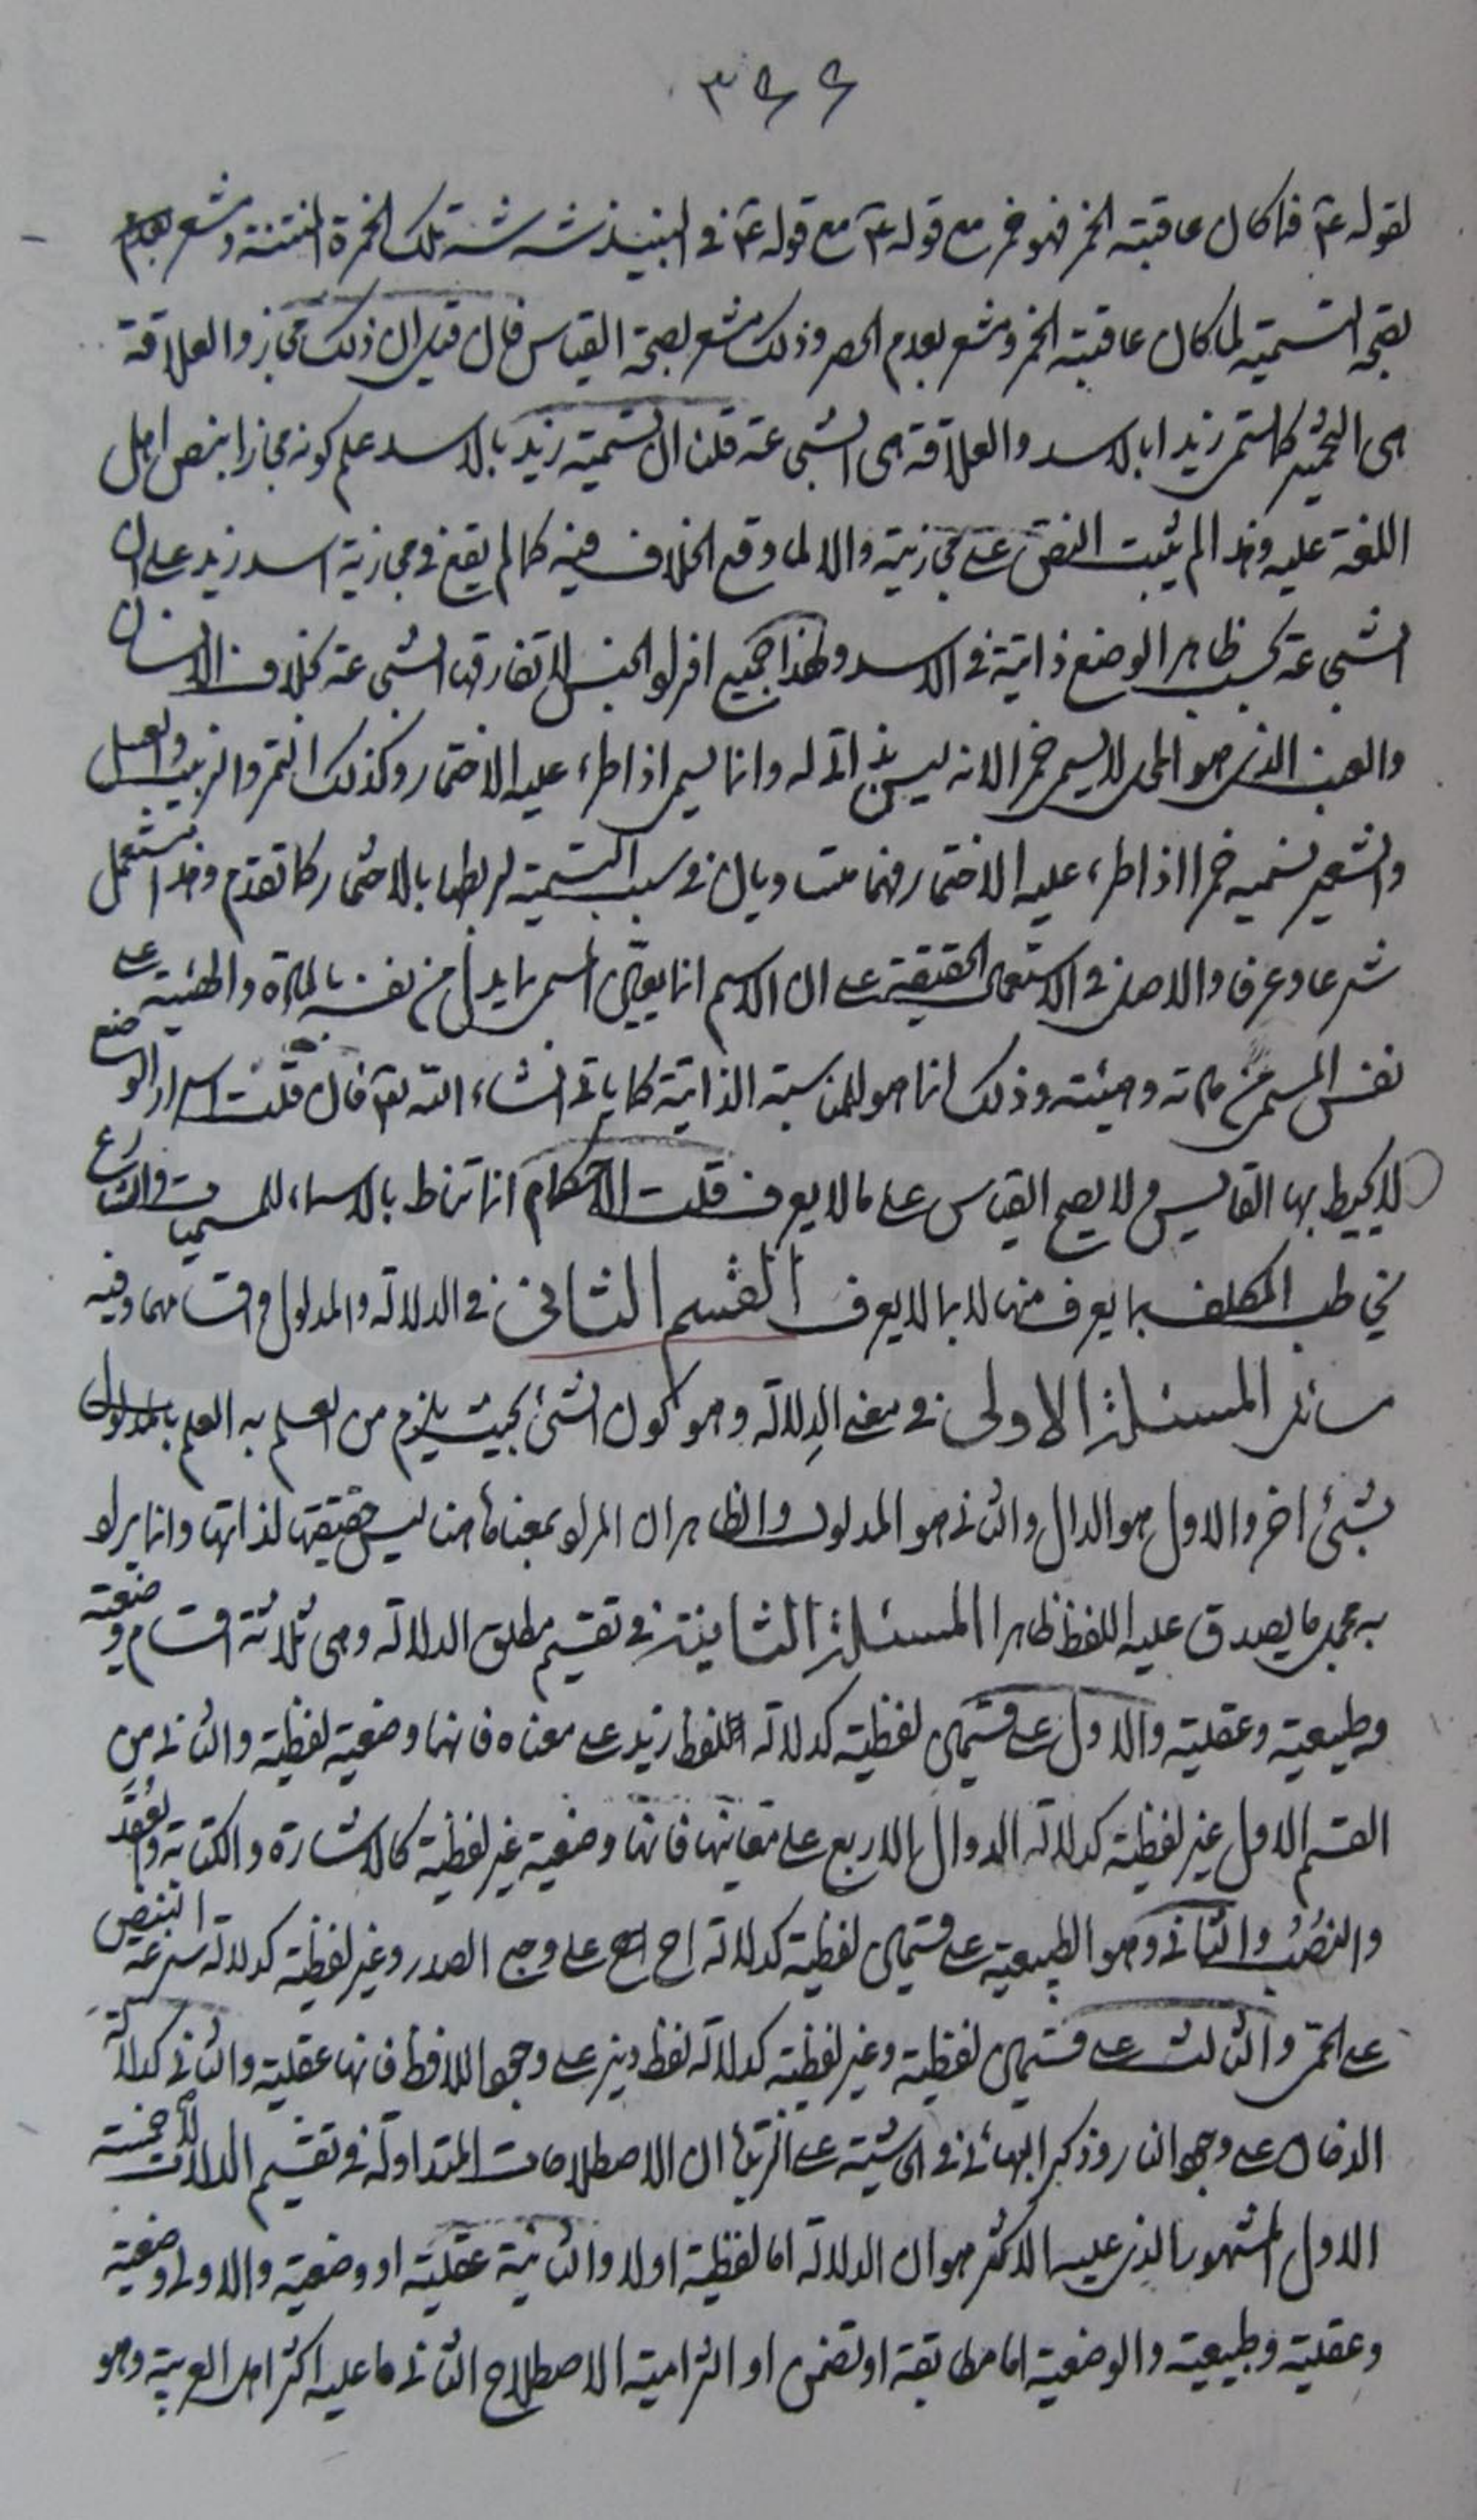 ٣٤٤
لقوله ع۴ فما كان عاقبته الخمر فهو خمر مع قوله ع۴ مع قوله ع۴ في النبيذ شه شه تلك الخمرة المنتنة ومشعر بعدم
بصحة التسمية لما كان عاقبته الخمر ومشعر بعدم الحصر وذلك مشعر بصحة القياس فان قيل ان ذلك مجاز والعلاقة
هي التخمير كما سمى زيدا بالاسد والعلاقة هي الشجاعة قلنا ان تسمية زيد بالاسد علم كونه مجازا بنص اهل
اللغة عليه وهذا لم يثبت النص على مجازيته والا لما وقع الخلاف فيه كما لم يقع في مجازية اسد زيد على ان
الشجاعة بحسب ظاهر الوضع ذاتية في الاسد ولهذا جميع افراد الجنس لا تفارقها الشجاعة بخلاف الانسان
والعنب الذي هو المحل لا يسمى خمرا لانه ليس بذاتي له وانما يسمى اذا طرء عليه الاختمار وكذلك التمر والزبيب والعسل
والشعير نسميه خمرا اذا طرء عليه الاختمار فهما متساويان في سبب التسمية لربطها بالاختمار كما تقدم وهذا استعمل
شرعا وعرفا والاصل في الاستعمال الحقيقة على ان الاسم انما يعين المسمى بما يدل من نفسه بالمادة والهيئة على
نفس المسمى من مادته وهيئته وذلك انما هو للمناسبة الذاتية كما ياتي انشاء الله تع۴ فان قلت اسرار الوضع
لا يحيط بها القايس ولا يصح القياس على ما لا يعرف قلت الاحكام انما تناط بالاسماء للمسميات والشارع
يخاطب المكلف بما يعرف منها لا بما لا يعرف القسم الثاني في الدلالة والمدلول واقسامهما وفيه
مسائل المسئلة الاولى في معنى الدلالة وهو كون الشئ بحيث يلزم من العلم به العلم بالمدلول
بشئ اخر والاول هو الدال والثاني هو المدلول والظاهر ان المراد بمعناها هنا ليس حقيقتها لذاتها وانما يراد
به مجمل ما يصدق عليه اللفظ ظاهرا المسئلة الثانية في تقسيم مطلق الدلالة وهي ثلاثة اقسام وضعية
وطبيعية وعقلية والاول على قسمين لفظية كدلالة لفظ زيد على معناه فانها وضعية لفظية والثاني من
القسم الاول غير لفظية كدلالة الدوال الاربع على معانيها فانها وضعية غير لفظية كالاشارة والكتابة والعقد
والنصب والثاني وهو الطبيعية على قسمين لفظية كدلالة اح اح على وجع الصدر وغير لفظية كدلالة سرعة النبض
على الحمى والثالث على قسمين لفظية وغير لفظية كدلالة لفظ ديز على وجود اللافظ فانها عقلية والثاني كدلالة
الدخان على وجود النار وذكر البهائي في حاشيته على الزبدة ان الاصطلاحات المتداولة في تقسيم الدلالات خمسة
الاول المشهور الذي عليه الاكثر هو ان الدلالة اما لفظية اولا والثانية عقلية او وضعية والاولى وضعية
وعقلية وطبيعية والوضعية اما مطابقة او تضمن او التزامية الاصطلاح الثاني ما عليه اكثر اهل العربية وهو